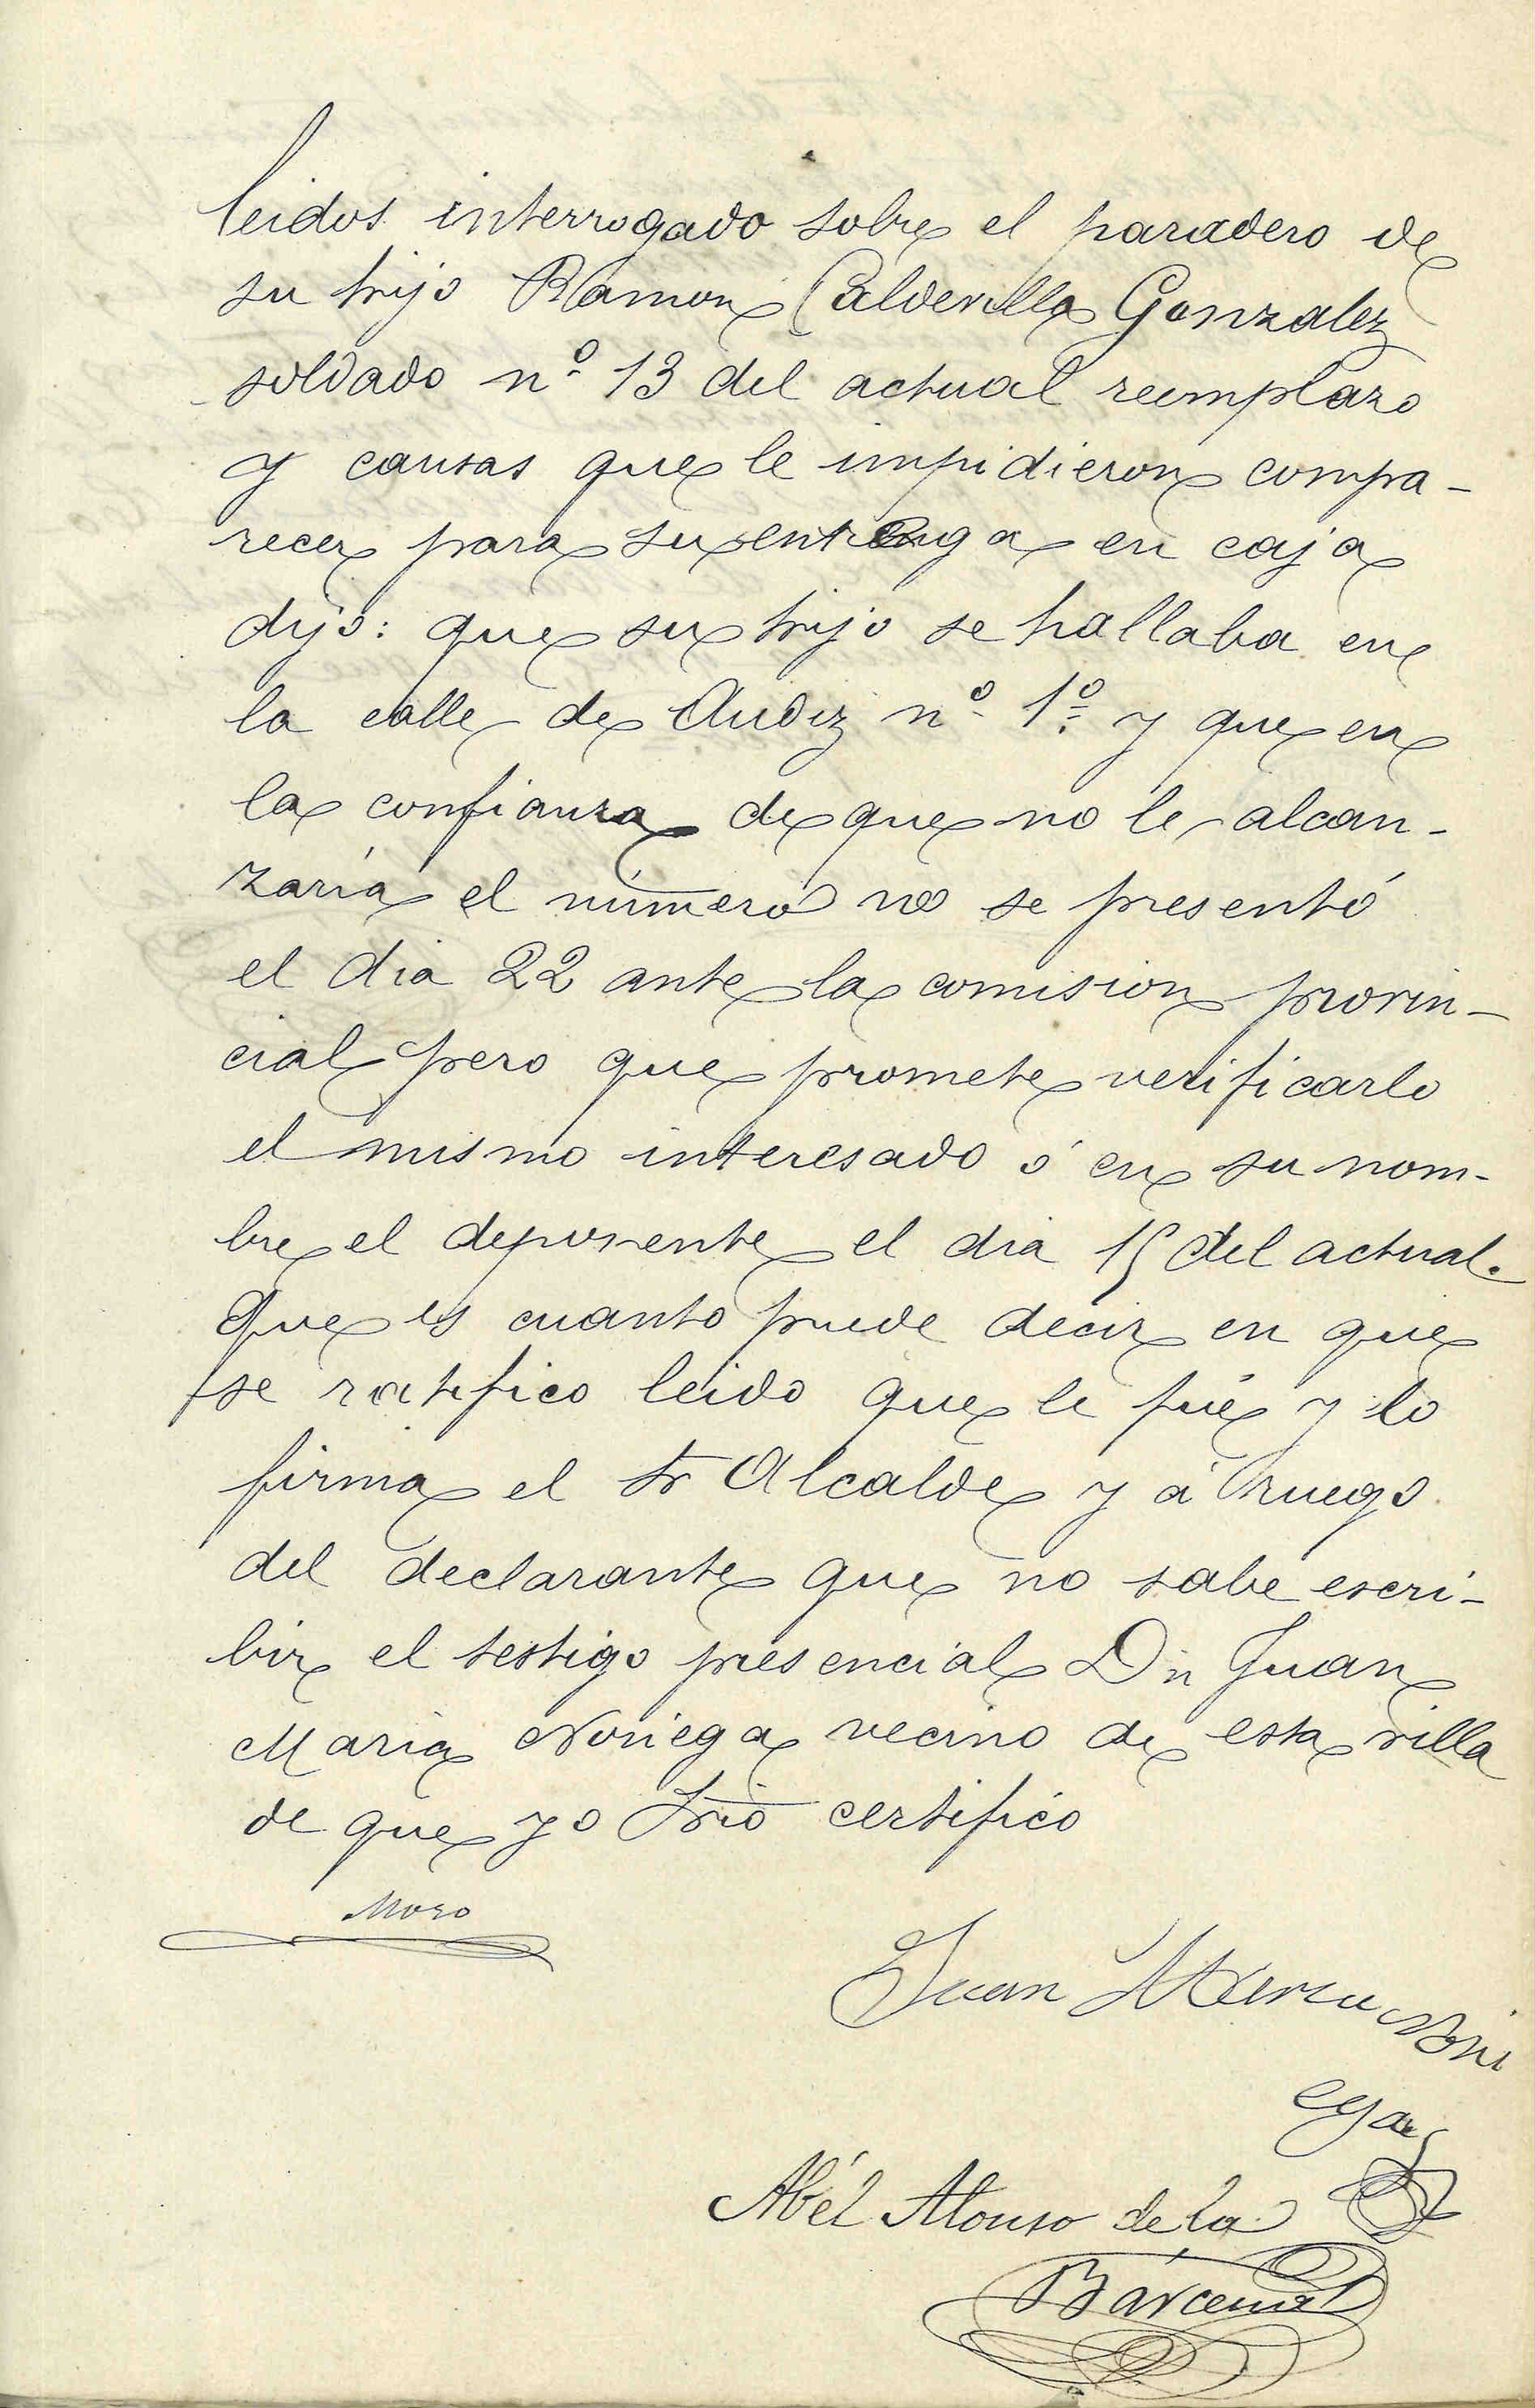 leidos interrogado sobre el paradero de
su hijo Ramon Caldevilla Gonzalez
soldado nº 13 del actual reemplazo
y causas que le impidieron compa-
recer para su entrega en caja
dijo: que su hijo se hallaba en
la calle de Andiz nº 1º y que en
la confianza de que no le alcan-
zaría el número no se presentó
el dia 22 ante la comision provin-
cial pero que promete verificarlo
el mismo interesado ó en su nom-
bre el deponente el dia 15 del actual.
Que es cuanto puede decir en que
se ratifico leido que le fué y lo
firma el Sr Alcalde y á ruego
del declarante que no sabe escri-
bir el testigo presencial Dn Juan
Maria Noriega vecino de esta villa
de que yo Srio certifico
Moro
Juan Maria Nori
ega
Abél Alonso de la
Bárcena